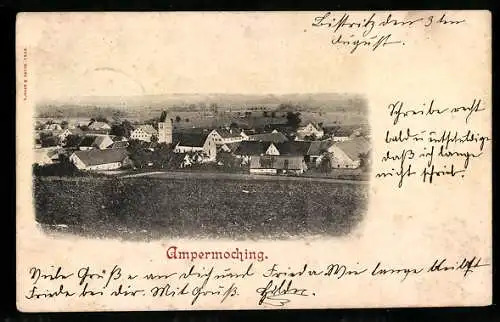 Bistritz den 3ten
August.
Schreibe recht
bald u entschuldige
daß ich lange
nicht schrieb.
Ampermoching.
Viele Grüße an dich und Frieda Wie lange bleibt
Friede bei dir. Mit Gruß